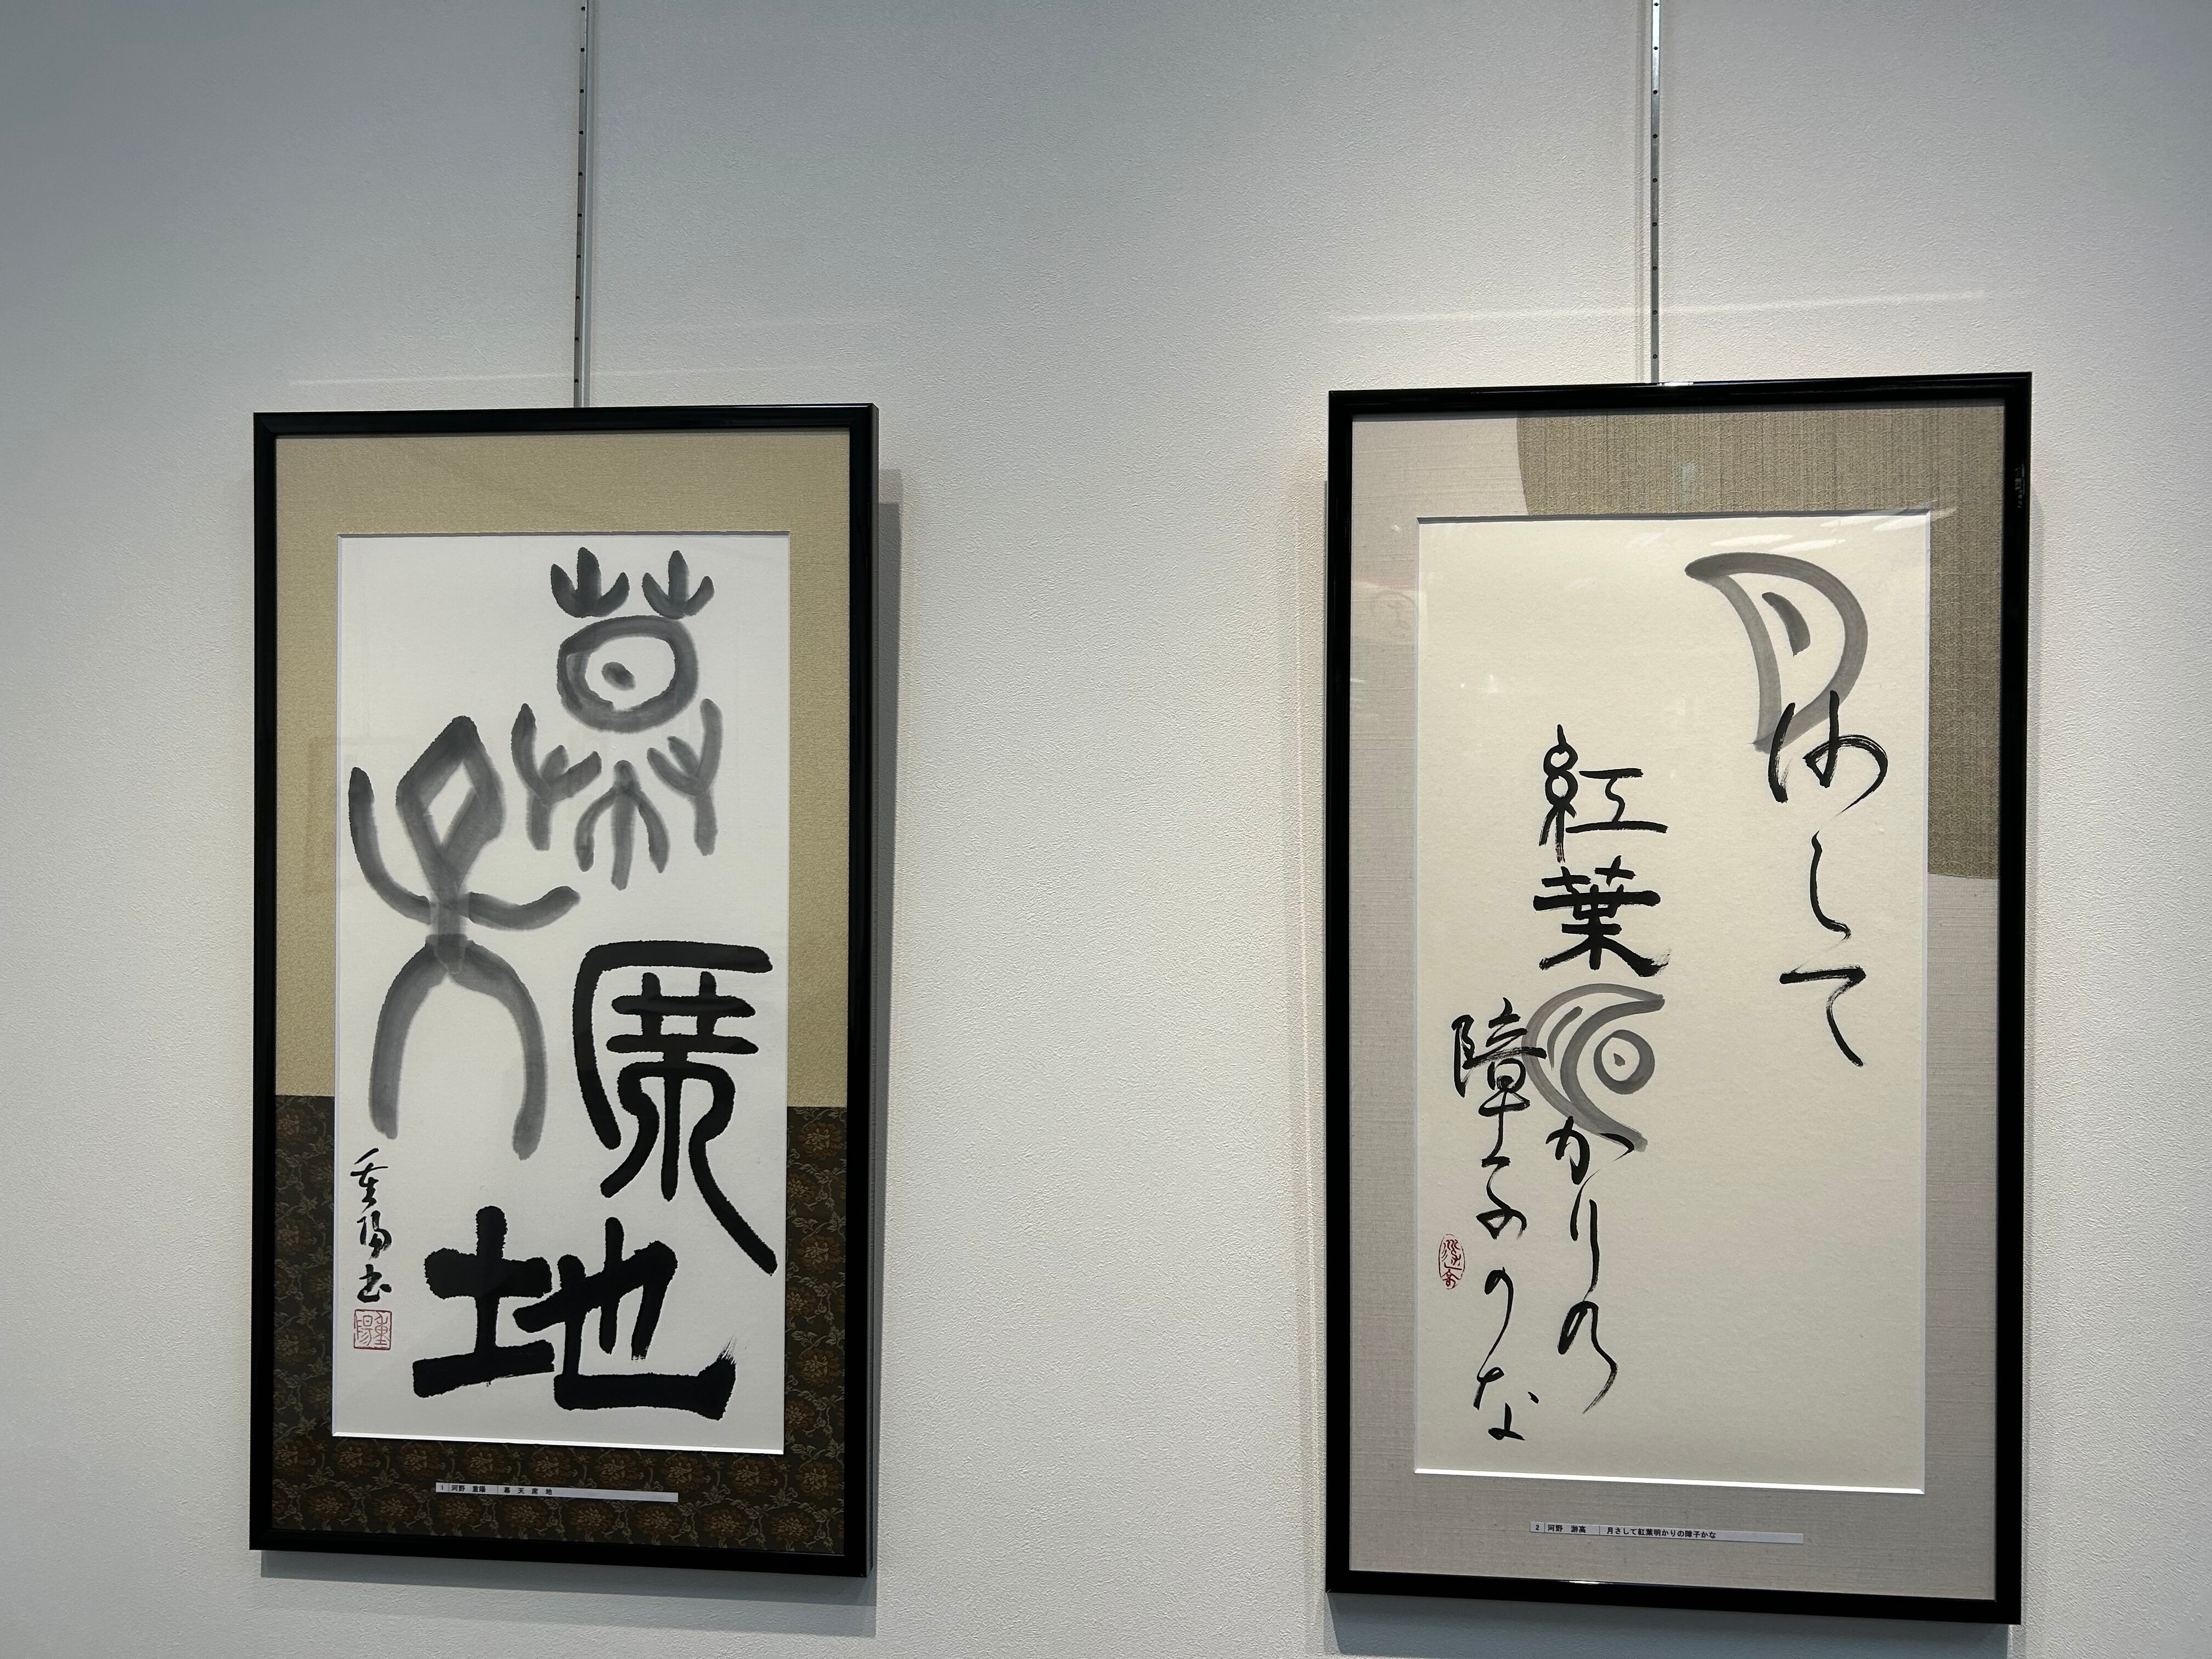 幕天
席地
重陽書
重陽
1 河野 重陽 幕 天 席 地
月さして
紅葉明かりの
障子かな
2 河野 游高 月さして紅葉明かりの障子かな